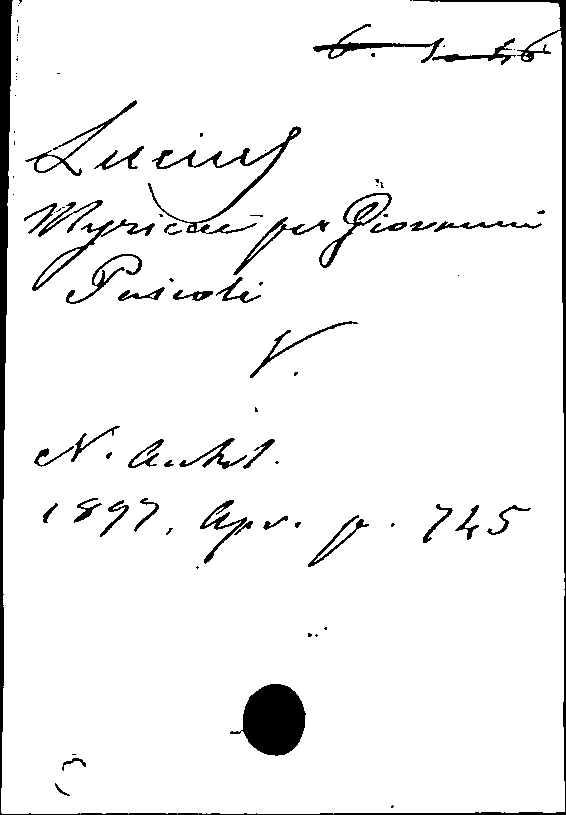 Lucius
Myricae per Giovanni
Pascoli
V.
N. Antol.
1897, Apr. p. 745